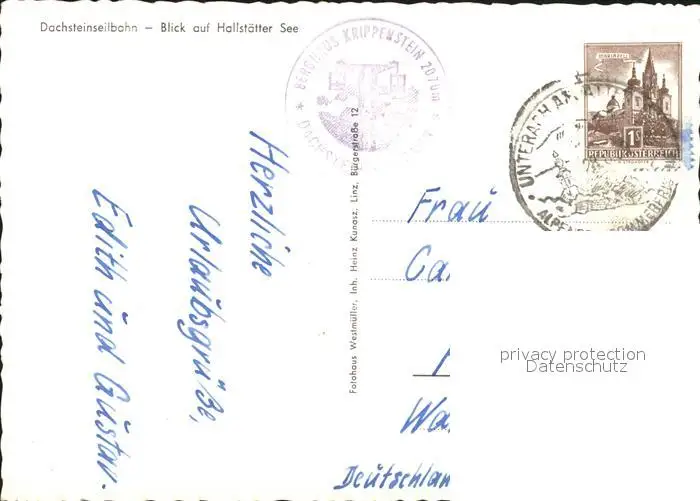 Dachsteinseilbahn – Blick auf Hallstätter See
BERGHAUS KRIPPENSTEIN 2070m
MARIAZELL
1S
REPUBLIK ÖSTERREICH
UNTERACH AM
Herzliche
Urlaubsgrüße,
Edith und Gustav.
Fotohaus Westmüller, Inh. Heinz Kunasz, Linz, Bürgerstraße 12
Frau
Ca
Wa
Deutschlan
privacy protection
Datenschutz